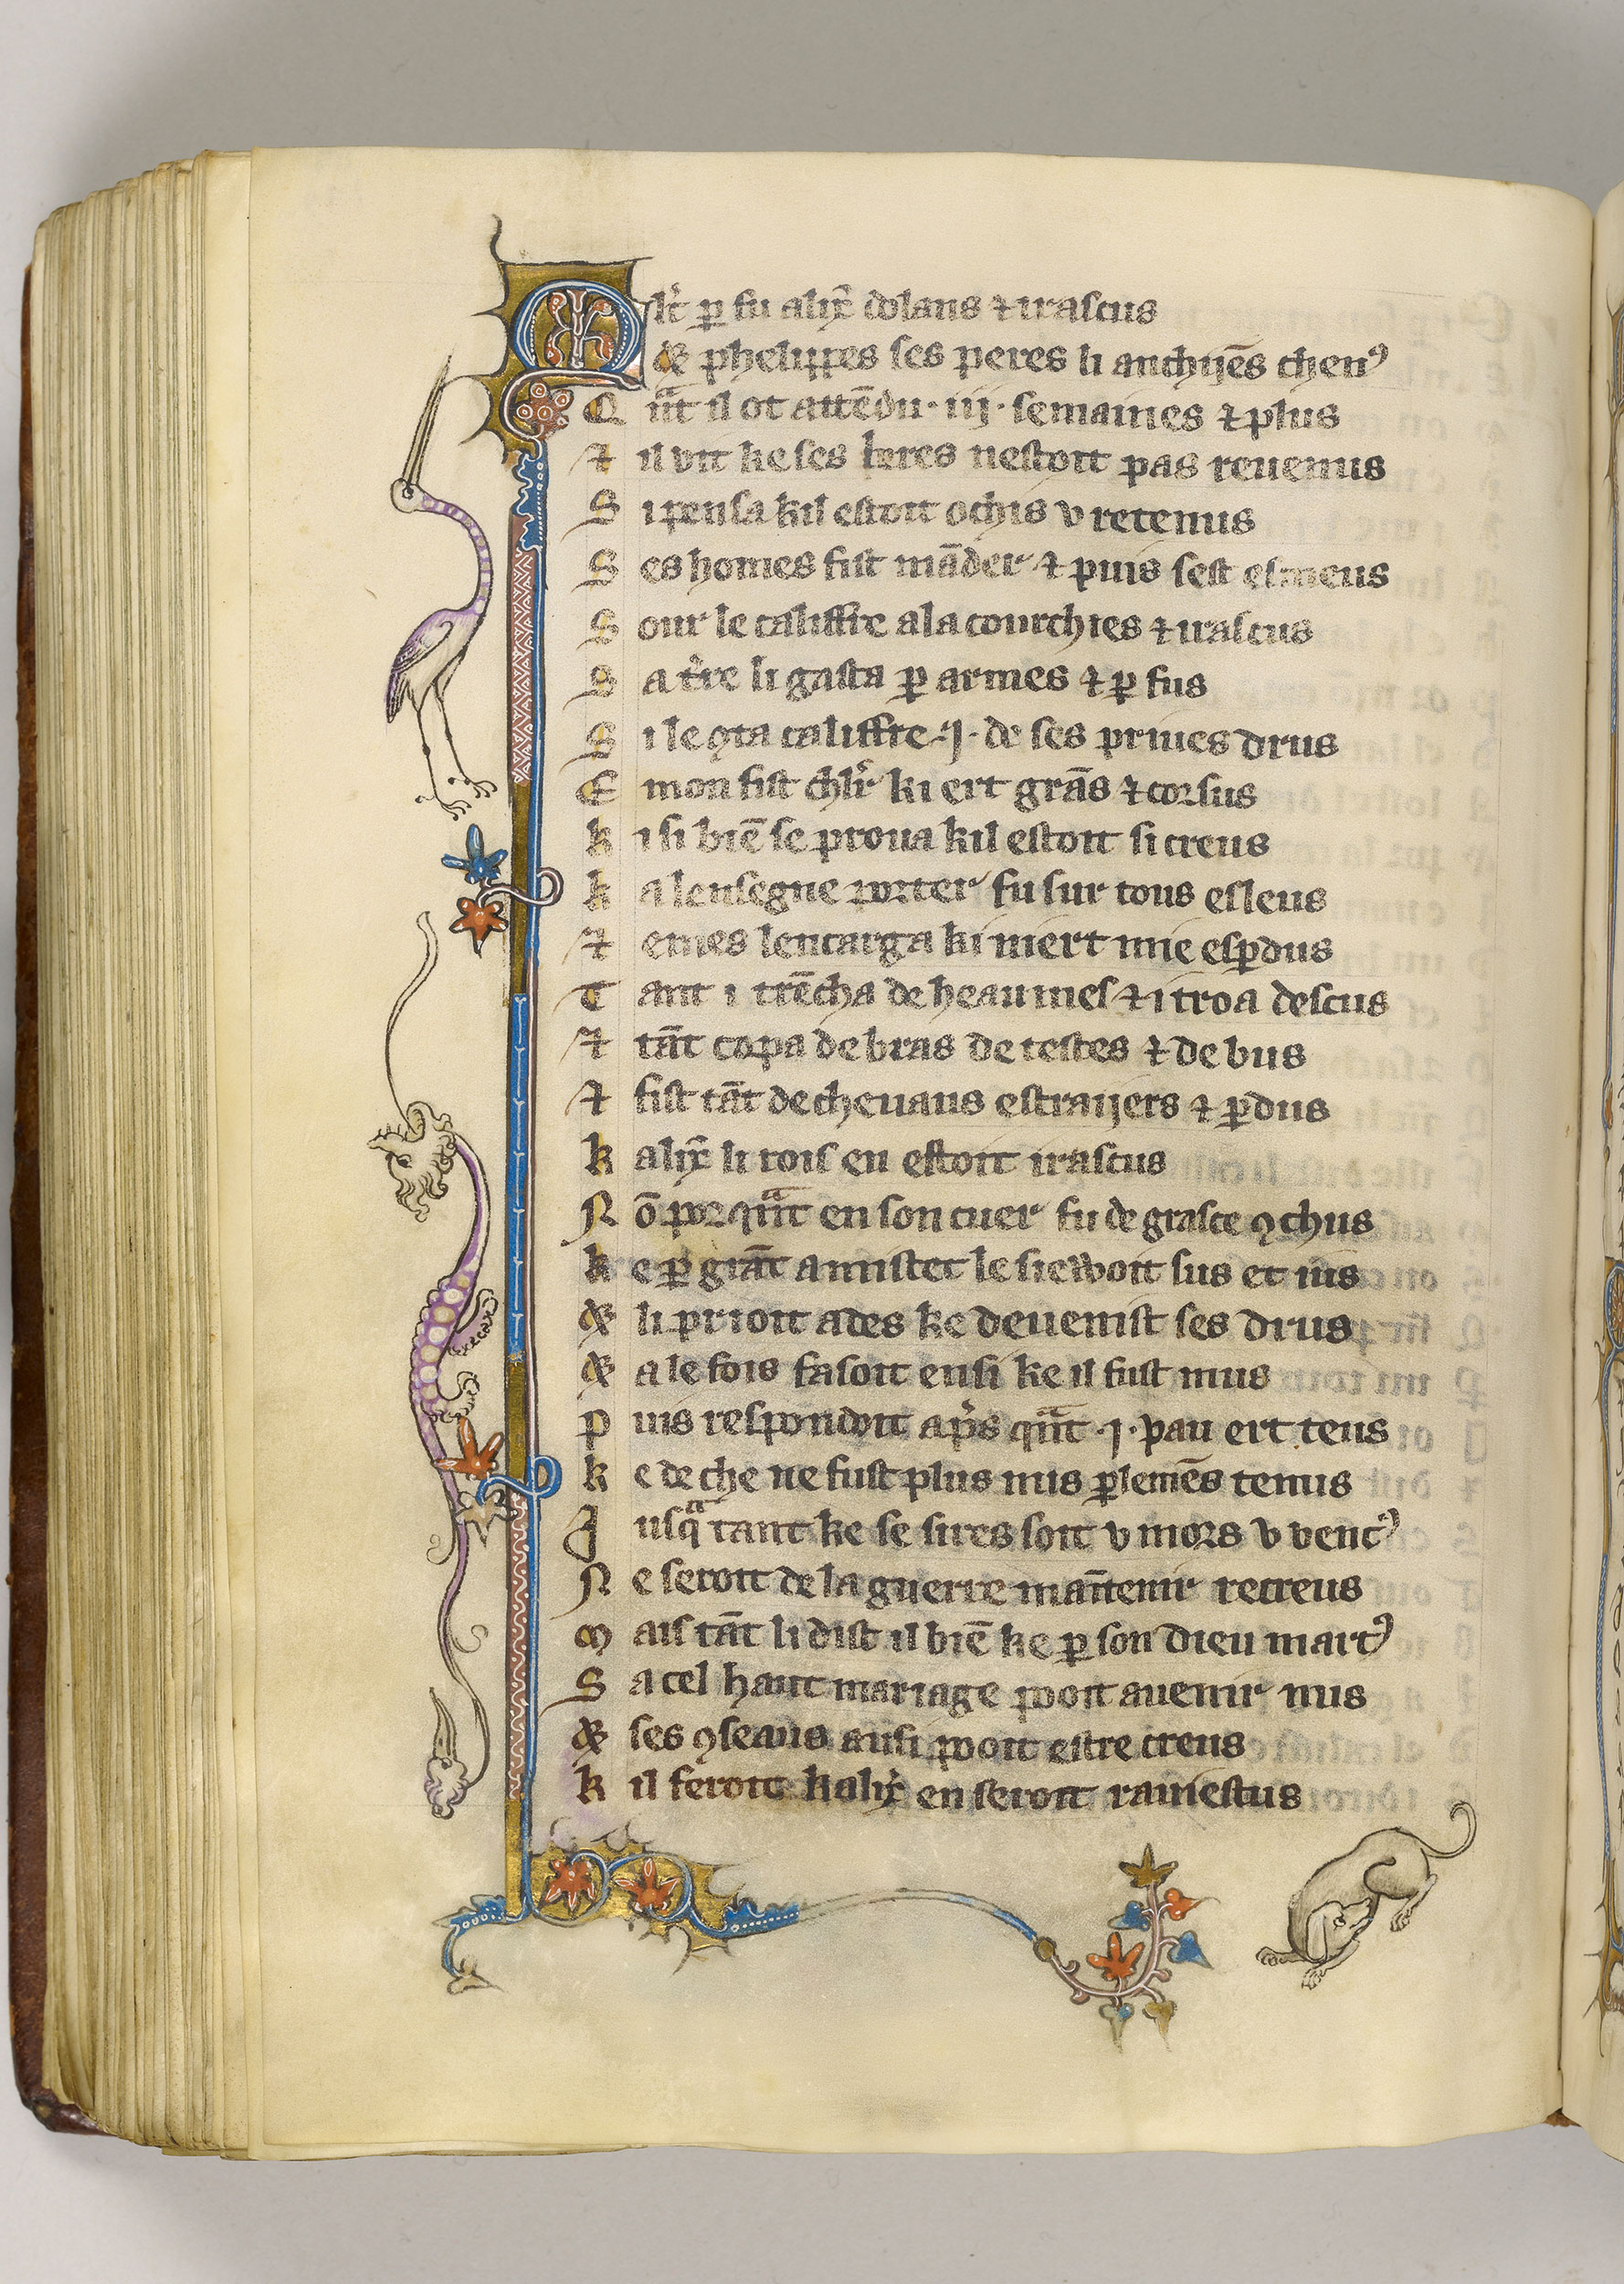 Mlt̄ ꝑ fu alix̄ dolans ⁊ irascus
& phelippes ses peres li anchijēs chenꝰ
Qn̄t il ot attēdu · iij · semaines ⁊ plus
⁊ il vit ke ses hr̄es nestoit pas reuenus
Si pensa kil estoit ochis v retenus
Ses homes fist māder ⁊ puis sest esmeus
Sour le califfre ala courchies ⁊ irascus
Sa tr̄re li gasta ꝑ armes ⁊ ꝑ fus
Si le ꝯta califfre · j · de ses priues drus
Emon fist chlr̄ ki ert grās ⁊ corsus
ki si biē se proua kil estoit si creus
ka lensegne porter fu sur tous esleus
⁊ emes lencarga ki niert mie esꝑdus
Tant i trēcha de heaumes ⁊ i troa descus
⁊ tāt copa de bras de testes ⁊ de bus
⁊ fist tāt de cheuaus estraijers ⁊ ꝑdus
k alix̄ li rois en estoit irascus
Nō por qn̄t en son cuer fu de grasce ꝯchus
ke ꝑ grāt amistet le siewoit sus et ius
& li prioit ades ke deuenist ses drus
& a le fois fasoit ensi ke il fust mus
puis respondoit ap̄s qn̄t · j · pau ert teus
ke de che ne fust plus nus ꝑlemēs tenus
Jusqᵃ tant ke se sires soit v mors v vencꝰ
Ne seroit de la guerre mātenir recreus
Mais tāt li dist il biē ke ꝑ son dieu martꝰ
Sa cel haut mariage pooit auenir nus
& ses ꝯseaus ausi pooit estre creus
kil feroit kalix̄ en seroit rauiestus